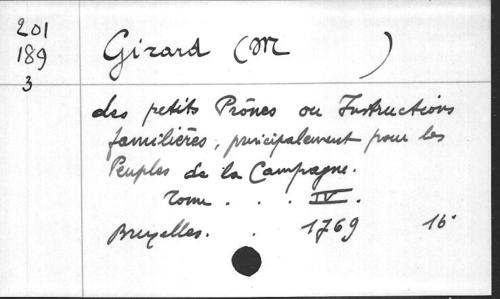 201
189
3
Girard (M )
des petits Prônes ou Instructions
familières, principalement pour les
Peuples de la Campagne.
Tome . . . IV.
Bruxelles. . 1769 16°